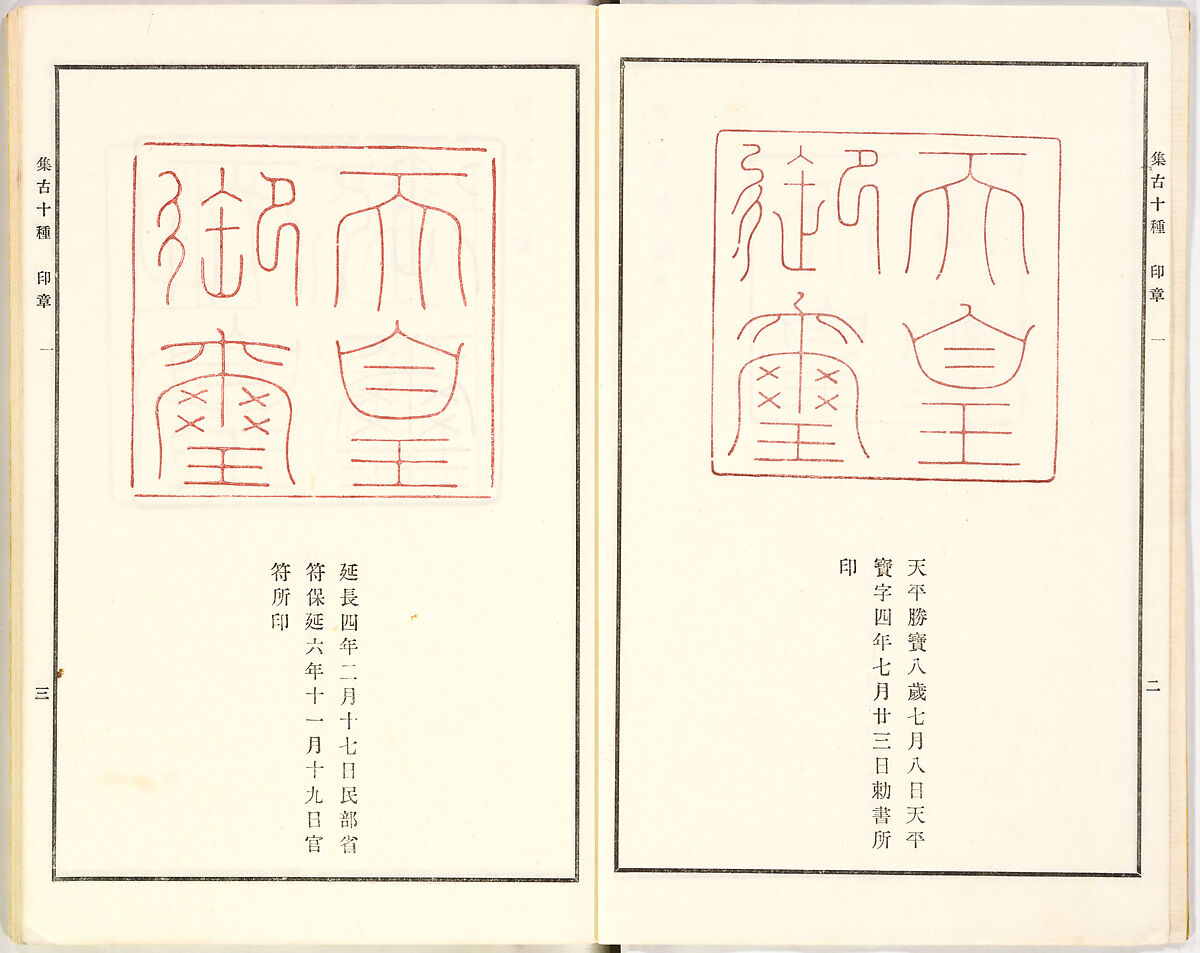 集古十種 印章 一
二
天皇
御璽
天平勝寶八歲七月八日天平
寶字四年七月廿三日勅書所
印
天皇
御璽
延長四年二月十七日民部省
符保延六年十一月十九日官
符所印
集古十種 印章 一
三